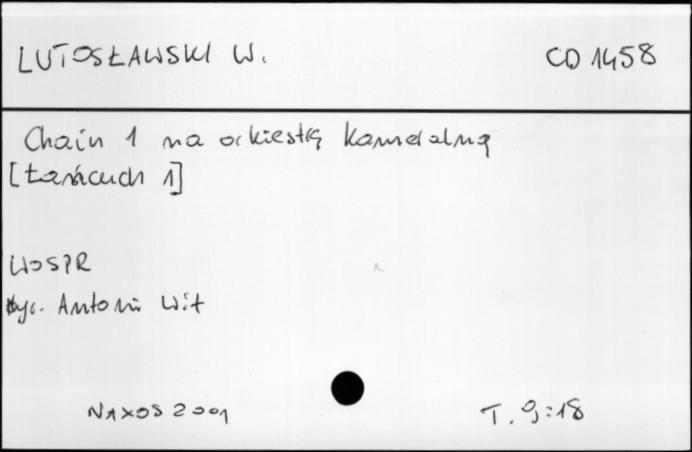 LUTOSŁAWSKI W. CD 1458
Chain 1 na orkiestrę kameralną
[Łańcuch 1]
WOSPR
dyr. Antoni Wit
NAXOS 2001 T. 9:18